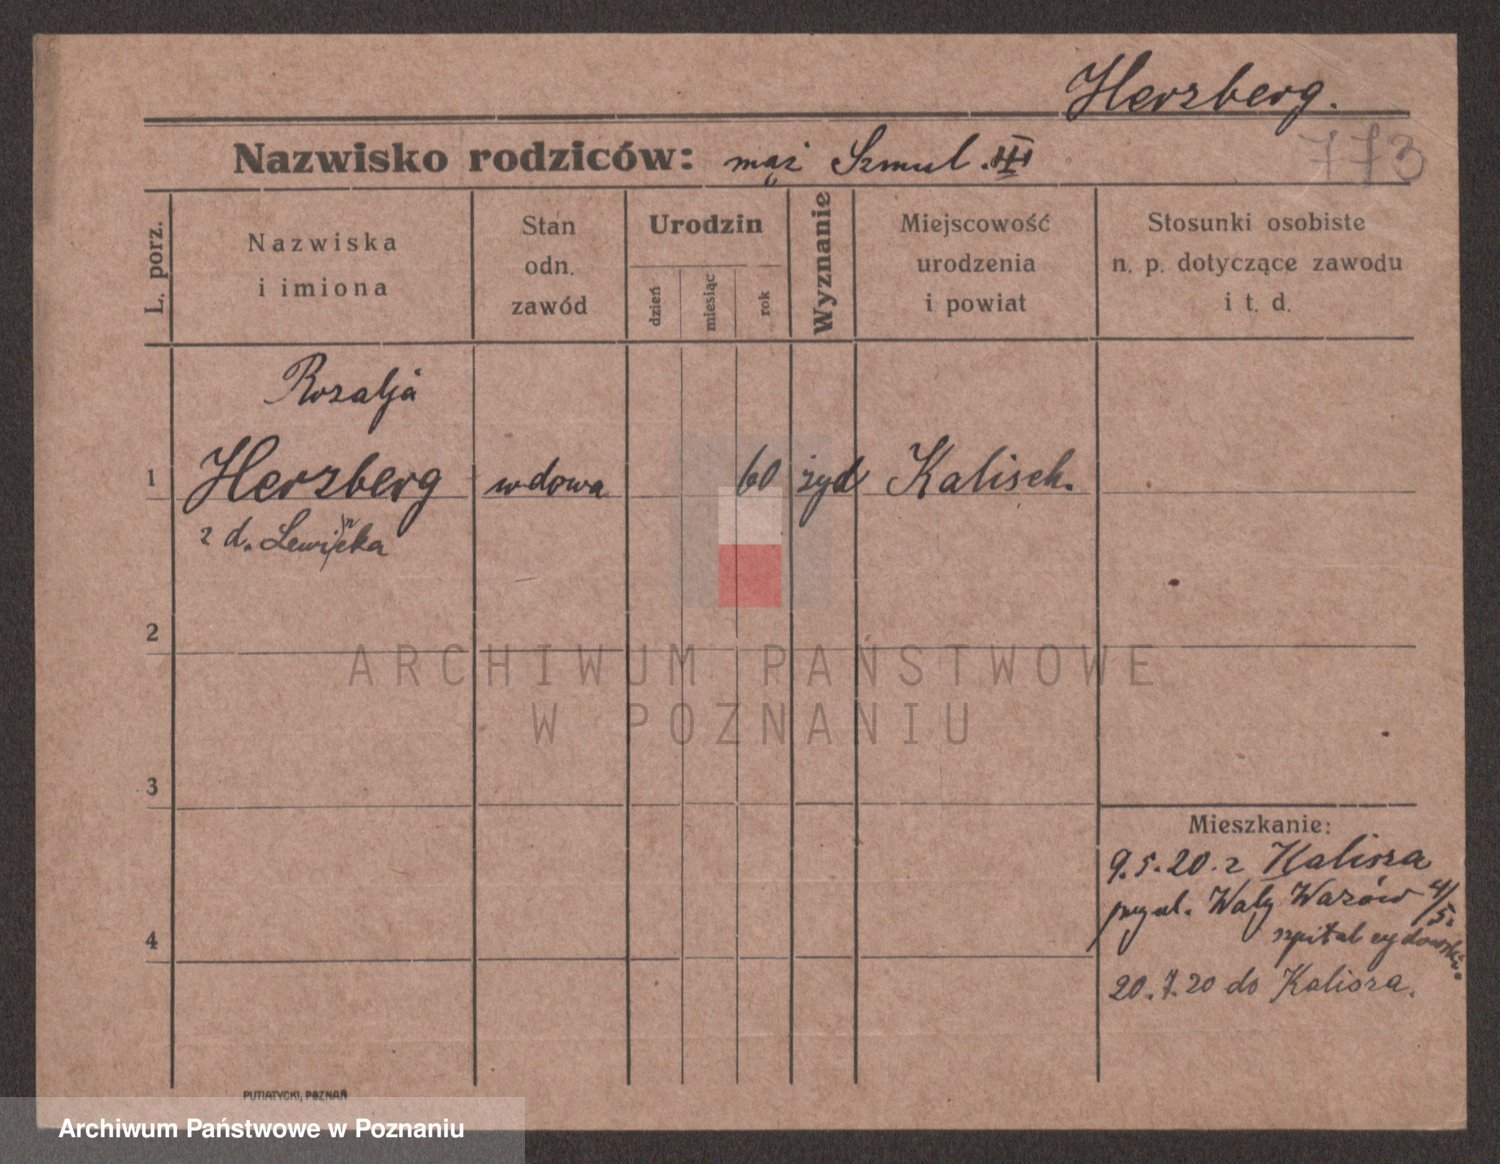 Herzberg.
773
Nazwisko rodziców: mąż Szmul. III
L. porz.
Nazwiska
i imiona
Stan
odn.
zawód
Urodzin
dzień
miesiąc
rok
Wyznanie
Miejscowość
urodzenia
i powiat
Stosunki osobiste
n. p. dotyczące zawodu
i t. d.
Rozalja
1 Herzberg wdowa 60 żyd Kalisch.
z d. Lewińka
2
ARCHIWUM PAŃSTWOWE
W POZNANIU
3
Mieszkanie:
9.5.20. z Kalisza
Wały Wazów 4/5.
4
szpital żydowski.
20.7.20 do Kalisza.
PUTIATYCKI, POZNAŃ
Archiwum Państwowe w Poznaniu